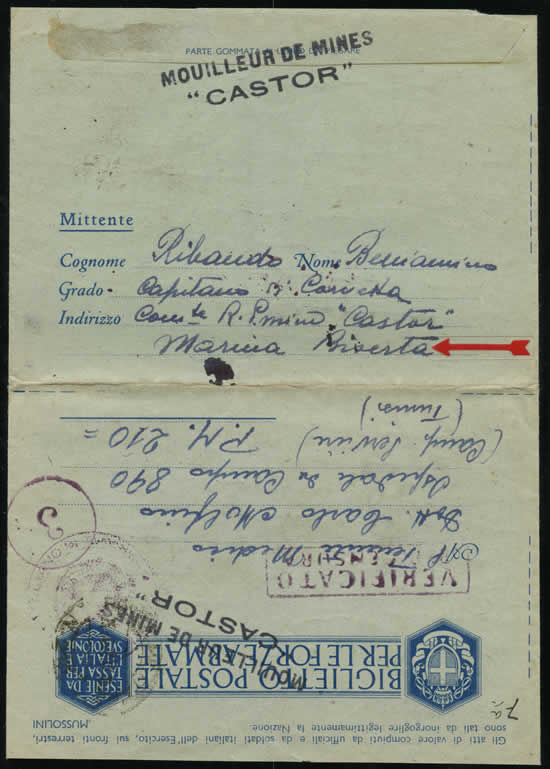 PARTE GOMMATA
MOUILLEUR DE MINES
"CASTOR"
Mittente
Cognome Ribaudo Nome Beniamino
Grado Capitano di Corvetta
Indirizzo Com.te R. P.mine "Castor"
Marina Biserta
Gli atti di valore compiuti da ufficiali e da soldati italiani dell'Esercito, sui fronti terrestri,
sono tali da inorgoglire legittimamente la Nazione
MUSSOLINI
7a
BIGLIETTO POSTALE
PER LE FORZE ARMATE
ESENTE DA
TASSA PER
L'ITALIA E
SUE COLONIE
MOUILLEUR DE MINES
"CASTOR"
VERIFICATO
CENSURA
Al Tenente Medico
Dott. Carlo Molfino
Ospedale da Campo 890
P.M. 210 =
(Tunisi)
3